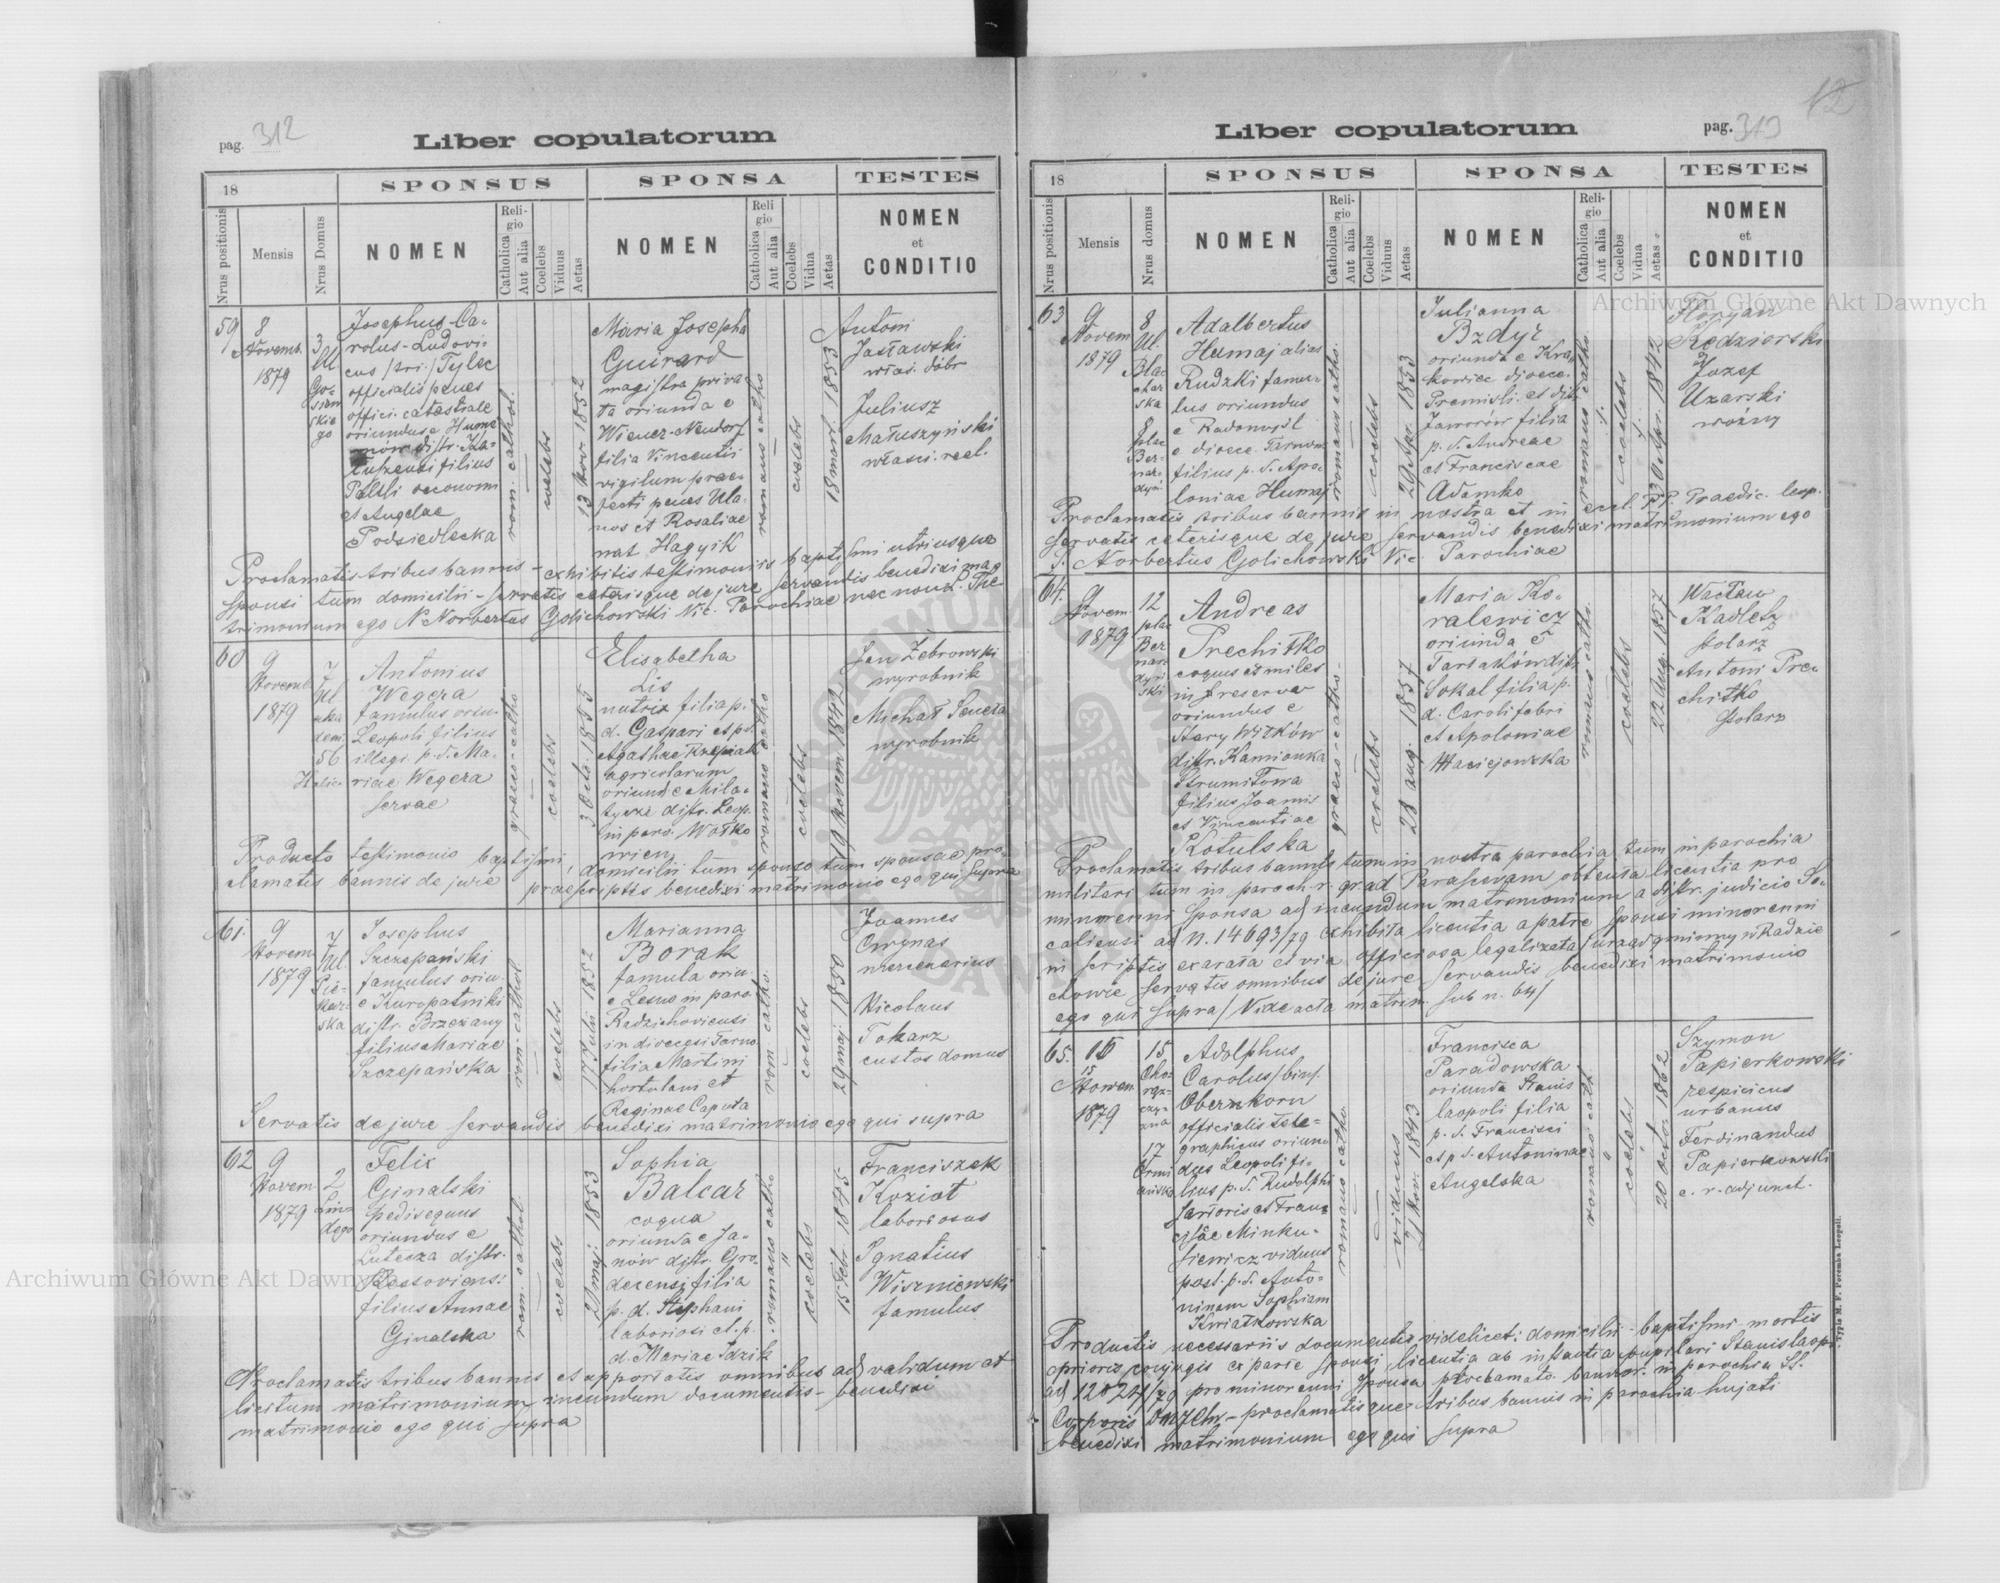 pag. 312
Liber copulatorum
18
SPONSUS
SPONSA
TESTES
Nrus positionis
Mensis
Nrus Domus
NOMEN
Religio
Catholica
Aut alia
Coelebs
Viduus
Aetas
NOMEN
Religio
Catholica
Aut alia
Coelebs
Vidua
Aetas
NOMEN
et
CONDITIO
59
8
Novemb.
1879
3
Ul
Go-
siew
skie
go
Josephus-Ca-
rolus-Ludovi-
cus /tri./ Tylec
officialis penes
offici. catastrale
oriundus e
distr. Ka-
luszensi filius
oeconomi
et Angelae
Podsiedlecka
rom. cathol.
coelebs
13 Nov 1852
Maria Josepha
Guirard
magistra priva-
ta oriunda e
Wiener-Neudorf
filia Vincentii
vigilum prae-
fecti penes Ula-
nos et Rosaliae
nat. Hagyik
romano catho
coelebs
18 mart. 1853
Antoni
Jasławski
właś. dóbr
Juliusz
Małuszyński
właści. real.
Proclamatis tribus bannis - exhibitis testimoniis baptismi utriusque
sponsi tum domicilii - servatis ceterisque de jure servandis benedixi ma
trimonium ego Norbertus Golichowski Vic. Parochiae nec non
60
9
Novemb
1879
7
Ul
56
Antonius
Wegera
famulus oriu.
Leopoli filius
illegi. p. d. Ma-
riae Wegera
servae
graeco-catho
coelebs
3 Octo. 1855
Elisabetha
Lis
nutrix filia p.
d. Gaspari et p. d.
Agathae Rzepiak
agricolarum
oriund e Mila-
tycze distr. Leop.
in paro. Wołko
wien
romano catho
coelebs
19 Novem 1842
Jan Żebrowski
wyrobnik
Michał Seneza
wyrobnik
Producto testimonio baptismi, domicilii tum sponso tum sponsae pro-
clamatis bannis de jure praescriptis benedixi matrimonio ego qui supra
61.
9
Novem
1879
7
Ul.
Pie-
kar
ska
Josephus
Szczepański
famulus oriu.
e Kuropatniki
distr. Brzezany
filius Mariae
Szczepańska
rom. cathol.
coelebs
17 Julii 1852
Marianna
Borak
famula oriu.
e Lesus in paro
Radzichoviensi
in dioecesi Tarno
filia Martini
hortulani et
Reginae Caputa
rom. catho.
coelebs
29 maj 1850
Joannes
Cwynas
mercenarius
Nicolaus
Tokarz
custos domus
Servatis de jure servandis benedixi matrimonio ego qui supra
62
9
Novem
1879
2
Lin-
dego
Felix
Ginalski
pedisequus
oriundus e
Lutecza distr.
Ressoviensi
filius Annae
Ginalska
rom. cathol.
coelebs
21 maj. 1853
Sophia
Balcar
coqua
oriunda e Ja-
nów distr. Gro-
decensi filia
p. d. Stephani
laboriosi et p.
d. Mariae Idzik
romano catho
coelebs
15 Febr. 1845
Franciszek
Kozioł
laboriosus
Ignatius
Wiszniewski
famulus
Proclamatis tribus bannis et apportatis omnibus ad validum et
licitum matrimonium incundum documentis - benedixi
matrimonio ego qui supra
12
Liber copulatorum
pag. 313
18
SPONSUS
SPONSA
TESTES
Nrus positionis
Mensis
Nrus domus
NOMEN
Religio
Catholica
Aut alia
Coelebs
Viduus
Aetas
NOMEN
Religio
Catholica
Aut alia
Coelebs
Vidua
Aetas
NOMEN
et
CONDITIO
63
9
Novem
1879
8
Ul.
Bla
char
ska
8
plac
Ber-
nar-
dyń.
Adalbertus
Humaj alias
Rudzki famu-
lus oriundus
e Radomysl
e dioece. Tarnow
filius p. d. Apo-
loniae Humaj
romano catho.
coelebs
20 Apr. 1853
Julianna
Bzdyż
oriunda e Kra-
kowiec dioece.
Premisli. et distr
Jaworów filia
p. d. Andreae
et Franciscae
Adamko
romano catho
coelebs
30 Apr. 1842
Floryan
Kędzierski
Jozef
Uzarski
woźny
Proclamatis tribus bannis in nostra et in eccl. P.P. Praedic. leop.
servatis ceterisque de jure servandis benedixi matrimonium ego
P. Norbertus Golichowski Vic. Parochiae
64.
9
Novem.
1879
12
plac
Ber
nar
dyń
ski
Andreas
Prechitko
coquus et miles
in freserva
oriundus e
Stary Witków
distr. Kamionka
Strumiłowa
filius Joannis
et Vincentiae
Kotulska
graeco-catho-
coelebs
28 aug. 1857
Maria Ko-
ralewicz
oriunda e
Tartaków distr.
Sokal filia p.
d. Caroli fabri
et Apoloniae
Maciejowska
romano catho.
coelebs
22 Aug. 1857
Wacław
Kadletz
stolarz
Antoni Pre-
chitko
stolarz
Proclamatis tribus bannis tum in nostra parochia, tum in parochia
militari tum in paroch. r. gr. ad Parascevam obtenta licentia pro
minorenni sponsa ad incundum matrimonium a distr. judicio So-
caliensi ad n. 14693/79 exhibita licentia a patre sponsi minorenni
in scriptis exarata et via officiosa legalizata /urząd gminny w Radzie
chowie servatis omnibus de jure servandis benedixi matrimonio
ego qui supra / Vide acta matrim. sub n. 64/
65.
15
Novem
1879
15
Cho-
rąż-
czy-
zna
17
Ormi
ańska
Adolphus
Carolus /bin/
Obernkorn
officialis tele-
graphicus oriun
dus Leopoli fi-
lius p. d. Rudolphi
sartoris et Fran-
cisae Minku-
siewicz viduus
post. p. d. Anto-
ninam Sophiam
Kwiatkowska
romano catho
viduus
21 Nov. 1843
Francisca
Paradowska
oriunda Stanis
laopoli filia
p. d. Francisci
et p. d. Antoninae
Angelska
romano cath
coelebs
20 Octo. 1862
Szymon
Papierkowski
respicicus
urbanus
Ferdinandus
Papierkowski
c. r. adjunct.
Productis necessariis documentis videlicet: domicilii - baptismi - mortis
prioris conjugis ex parte sponsi licentia ab instantia pupilari Stanislaopo.
ad 12024/79 pro minorenni sponsa proclamato bannor. in parochia SS.
Corporis - proclamatisque tribus bannis in parochia hujati
benedixi matrimonium ego qui supra
Typis M. F. Poremba Leopoli.
Archiwum Główne Akt Dawnych
Archiwum Główne Akt Dawnych